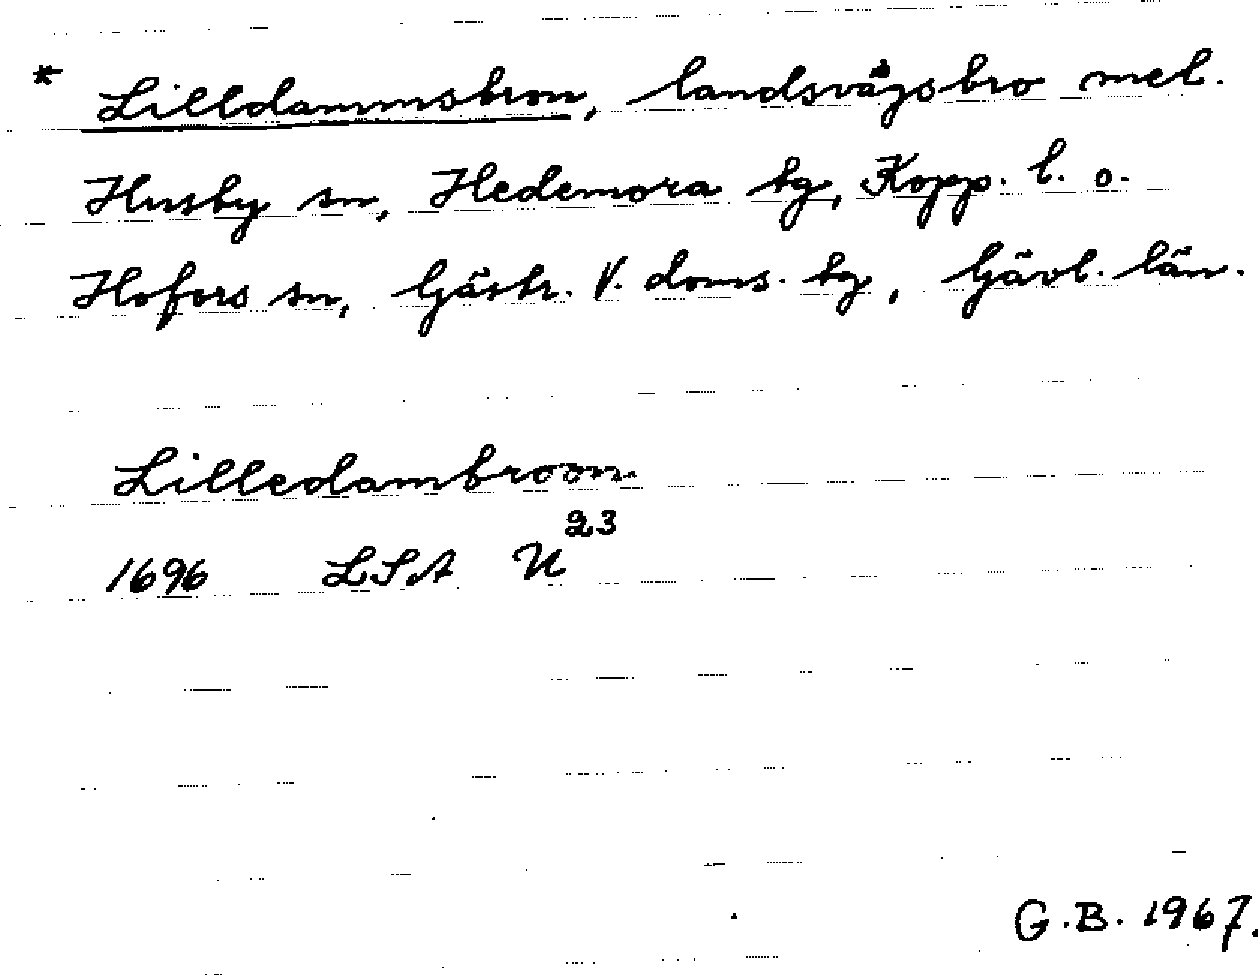 * Lilldammsbron, landsvägsbro mel.
Husby sn, Hedemora tg, Kopp. l. o.
Hofors sn, Gästr. V. doms. tg, Gävl. län.
Lilledambroon
1696 LSA U²³
G.B. 1967.